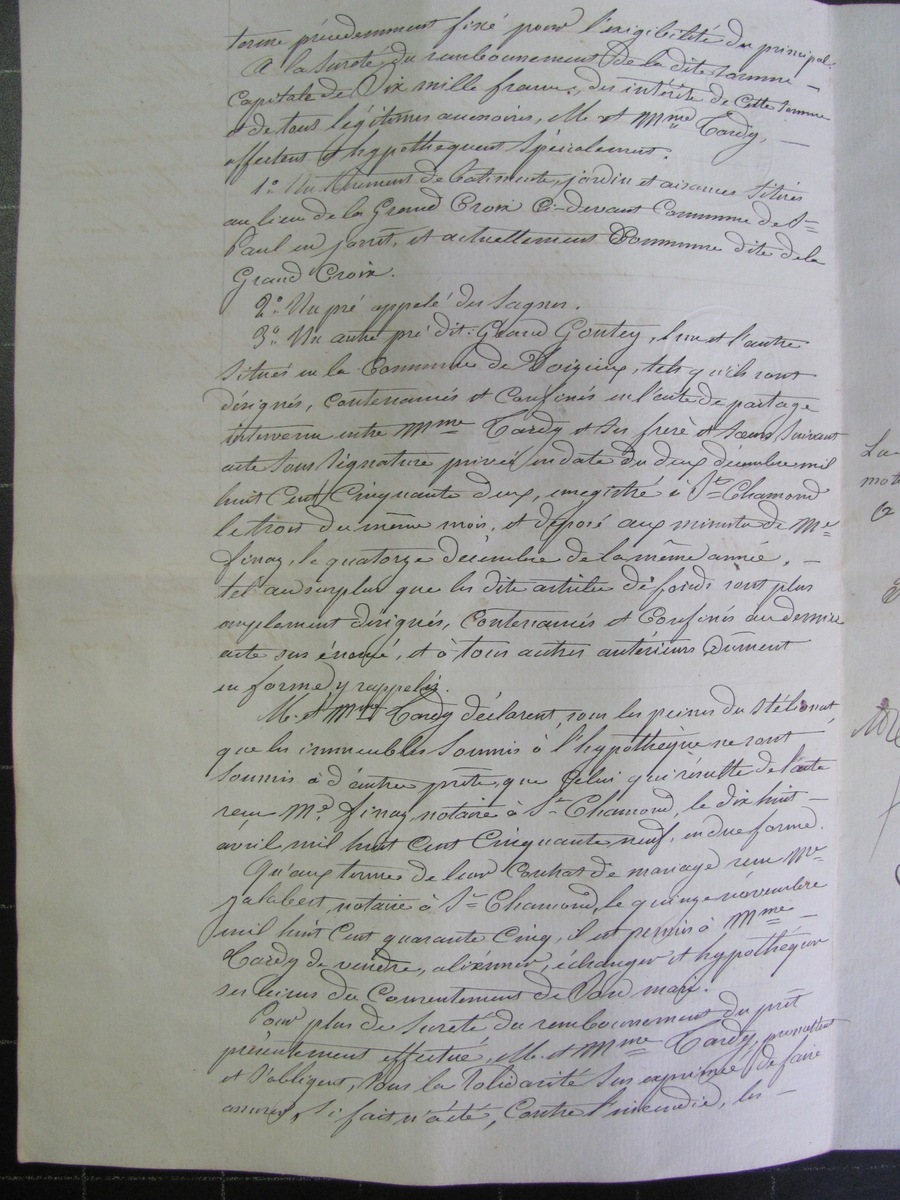 terme précédemment fixé pour l'exigibilité du principal.
A la sureté du remboursement de la dite somme —
Capitale de Dix mille francs, des intérêts de cette somme
et de tous légitimes accessoires, M. et Mme Tardy, —
affectent et hypothèquent spécialement.
1° Un tènement de batiments, jardin et aisances situés
au lieu de la Grand Croix Ci-devant Commune de St
Paul en jarret, et actuellement Commune dite de la
Grand Croix.
2° Un pré appelé des Sagnes.
3° Un autre pré dit: Grand Goutey, l'un et l'autre
situés en la Commune de Doizieux, tels qu'ils sont
désignés, contenancés et confinés en l'acte de partage
intervenu entre Mme Tardy et ses frère et sœurs, suivant
acte sous signature privée en date du deux décembre mil
huit Cent Cinquante deux, enregistré à St Chamond
le trois du même mois, et déposé aux minutes de Me
Finaz, le quatorze décembre de la même année, —
tel au surplus que les dits articles de fonds sont plus
amplement désignés, Contenancés et Confinés au dernier
acte sus énoncé, et à tous autres antérieurs dûment
en forme y rappelés.
M. et Mme Tardy déclarent, sous les peines du stélionat
que les immeubles soumis à l'hypothèque ne sont
soumis à d'autre prêt, que celui qui résulte de l'acte
reçu Me Finaz, notaire à St Chamond, le dix huit —
avril mil huit cent Cinquante neuf, en due forme.
Qu'aux termes de leur Contrat de mariage reçu Me
Jalabert, notaire à St Chamond, le quinze novembre
mil huit Cent quarante Cinq, il est permis à Mme —
Tardy de vendre, aliéner, échanger et hypothéquer
ses biens du Consentement de son mari.
Pour plus de sureté du remboursement du prêt
présentement effectué, M. et Mme Tardy, promettent
et s'obligent, sous la solidarité sus exprimée, de faire
assurer, si fait n'a été, Contre l'incendie, les —
La